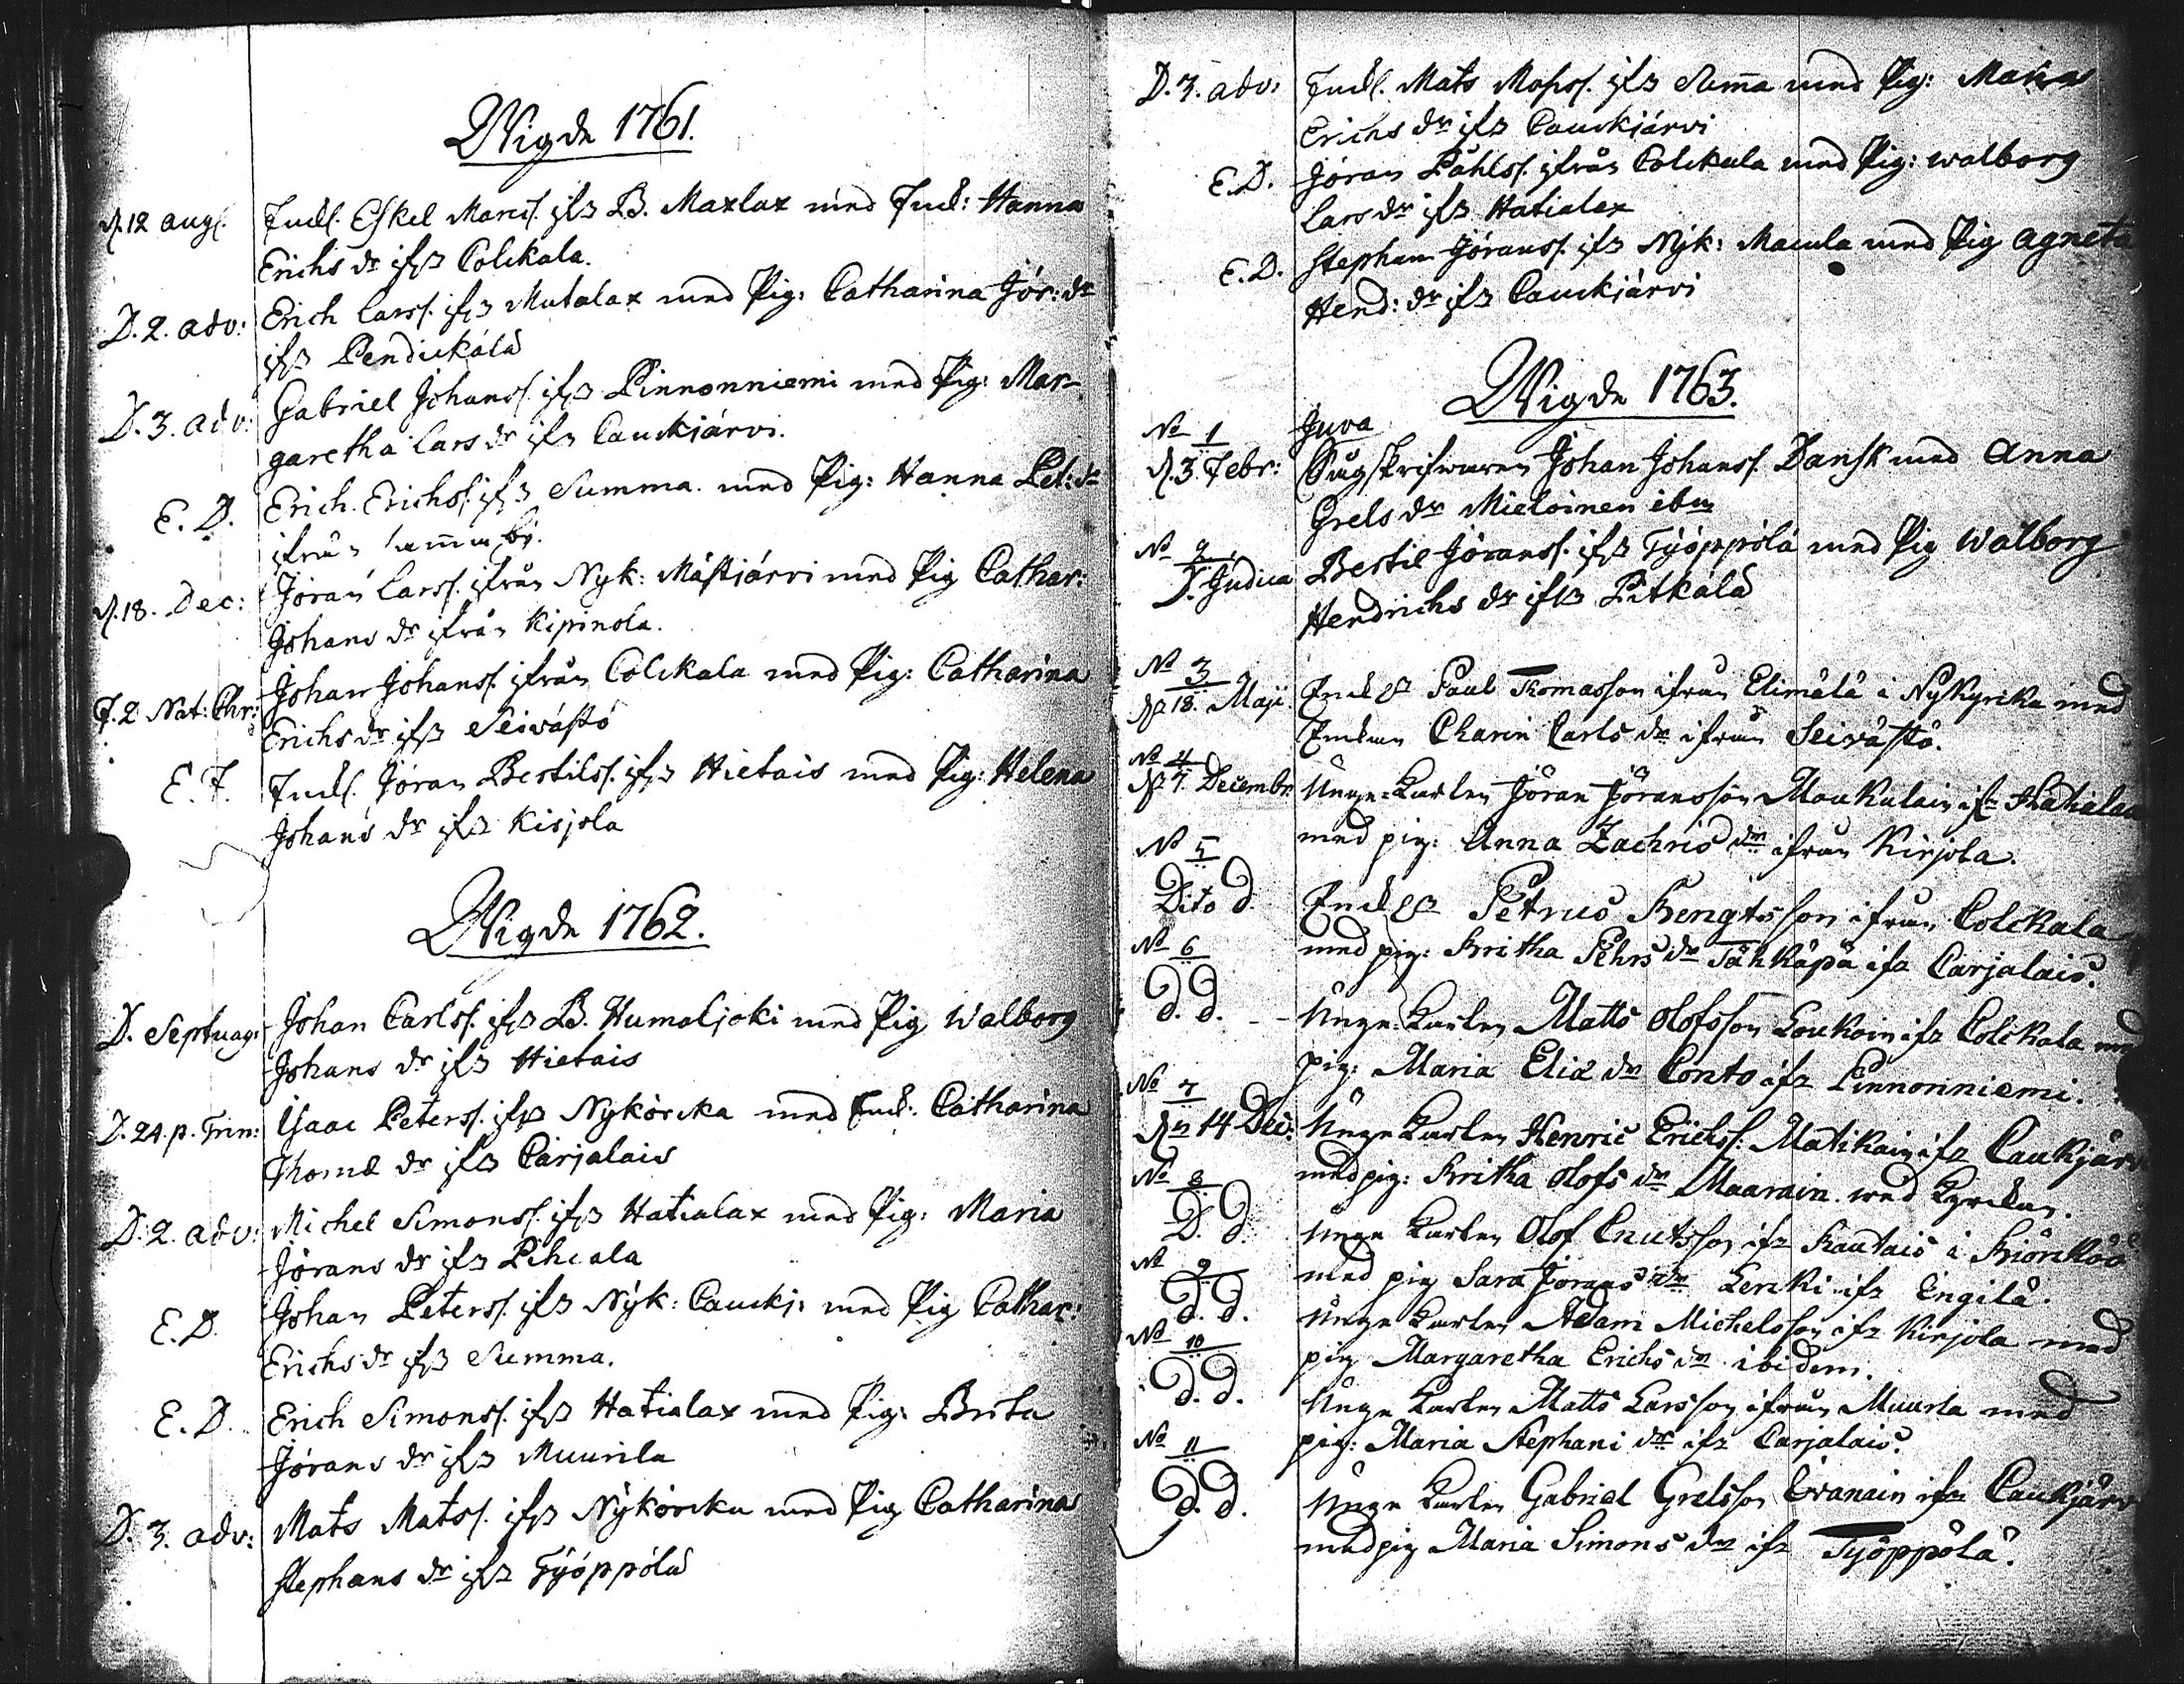 Wigde 1761.
d. 12 aug. Enkl. Eskel Marcs. ifrå B. Maxlax med Enk: Hanna
Erichs dr ifrå Colckala.
D. 2. adv: Erich Larss. ifrå Mutalax med Pig: Catharina Jör: dr
ifrå Pendickälä
D. 3. adv: Gabriel Johanss. ifrå Pinnonniemi med Pig: Mar-
garetha Lars dr ifrå Cauckiärvi.
E. D. Erich Erichss. ifrå Summa med Pig: Hanna Pet: dr
ifrån samma by.
d. 18. Dec: Jöran Larss. ifrån Nyk: Mästiärvi med Pig Cathar:
Johans dr ifrån Kipinola.
F. 2 Nat: Chr: Johan Johanss. ifrån Colckala med Pig: Catharina
Erichs dr ifrå Seivästö
E. F. Enkl. Jöran Bertilss. ifrå Hietais med Pig: Helena
Johans dr ifrå Kirjola
Wigde 1762.
D. Septuag: Johan Carlss. ifrå B. Humaljoki med Pig Walborg
Johans dr ifrå Hietais
D. 24. p. Trin: Isaac Peterss. ifrå Nykörcka med Enk: Catharina
Thomæ dr ifrå Carjalais
D. 2. adv: Michel Simonss. ifrå Hatialax med Pig: Maria
Jörans dr ifrå Pihcala
E. D. Johan Peterss. ifrå Nyk: Caucki: med Pig Cathar:
Erichs dr ifrå Summa.
E. D. Erich Simonss. ifrå Hatialax med Pig: Brita
Jörans dr ifrå Muurila
D. 3. adv: Mats Matss. ifrå Nykörcka med Pig Catharina
Stephans dr ifrå Työppölä
D. 3. adv: Enkl. Mats ifrå Suma med Pig: Maria
Erichs dr ifrå Cauckiärvi
E. D. Jöran Påhlss. ifrån Colckala med Pig: Walborg
Lars dr ifrå Hatialax
E. D. Stephan Jöranss. ifrå Nyk: Maeula med Pig Agneta
Hend: dr ifrå Cauckiärvi
Wigde 1763.
No 1 Juva
d. 3. Febr: Johan Johanss. Dansk med Anna
Grels dr Mieloinen ibm
No 2
D. Judica Bertil Jöranss. ifrå Työppölä med Pig Walborg
Hendrichs dr ifrå Pitkälä
No 3
d. 18. Maji. Enkl. Paul Thomasson ifrån Elimälä i Nykyrka med
Enkan Charin Carls dr ifrån Seivästö.
No 4
d. 7. Decembr. Unge-Karlen Jöran Jöransson Moukulain ifr. Hatialax
med pig: Anna Zachris dr ifrån Kirjola.
No 5
Dito d. Enkl. Petrus Bengtsson ifrån Colckala
med pig: Britha Pehrs dr Tähkäpä ifr Carjalais.
No 6
d. d. Unge-Karlen Matts Olofsson Loukoin ifr Colckala med
pig: Maria Eliæ dr Conto ifr Pinnonniemi.
No 7
dn 14 Dec: Unge Karlen Henric Erichss: Matikain ifr Caukjärvi
med pig: Britha Olofs dr Maarain wed Kyrckan.
No 8
D. d. Unge Karlen Olof Cnutsson ifr Rautais i Biörköö
med pig Sara Jörans dr Lercki ifr Engilä.
No 9
d. d. Unge Karlen Adam Michelsson ifr Kirjola med
pig Margaretha Erichs dr ibidem.
No 10
d. d. Unge Karlen Matts Larsson ifrån Muurla med
pig: Maria Stephani dr ifr Carjalais.
No 11
d. d. Unge Karlen Gabriel Grelsson Evanain ifr Caukjärvi
med pig Maria Simons dr ifr Työppölä.